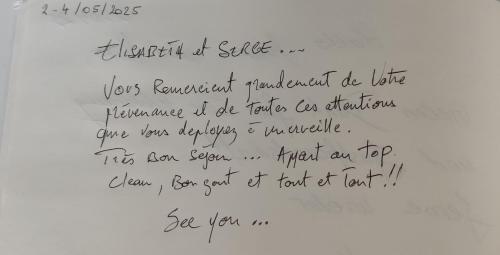 2-4/05/2025
ELISABETH et SERGE ...
Vous Remercient grandement de Votre
prévenance et de toutes ces attentions
que vous deployez à merveille.
Très Bon Séjour ... Appart au top.
Clean, Bon gout et tout et Tout!!
See you ...